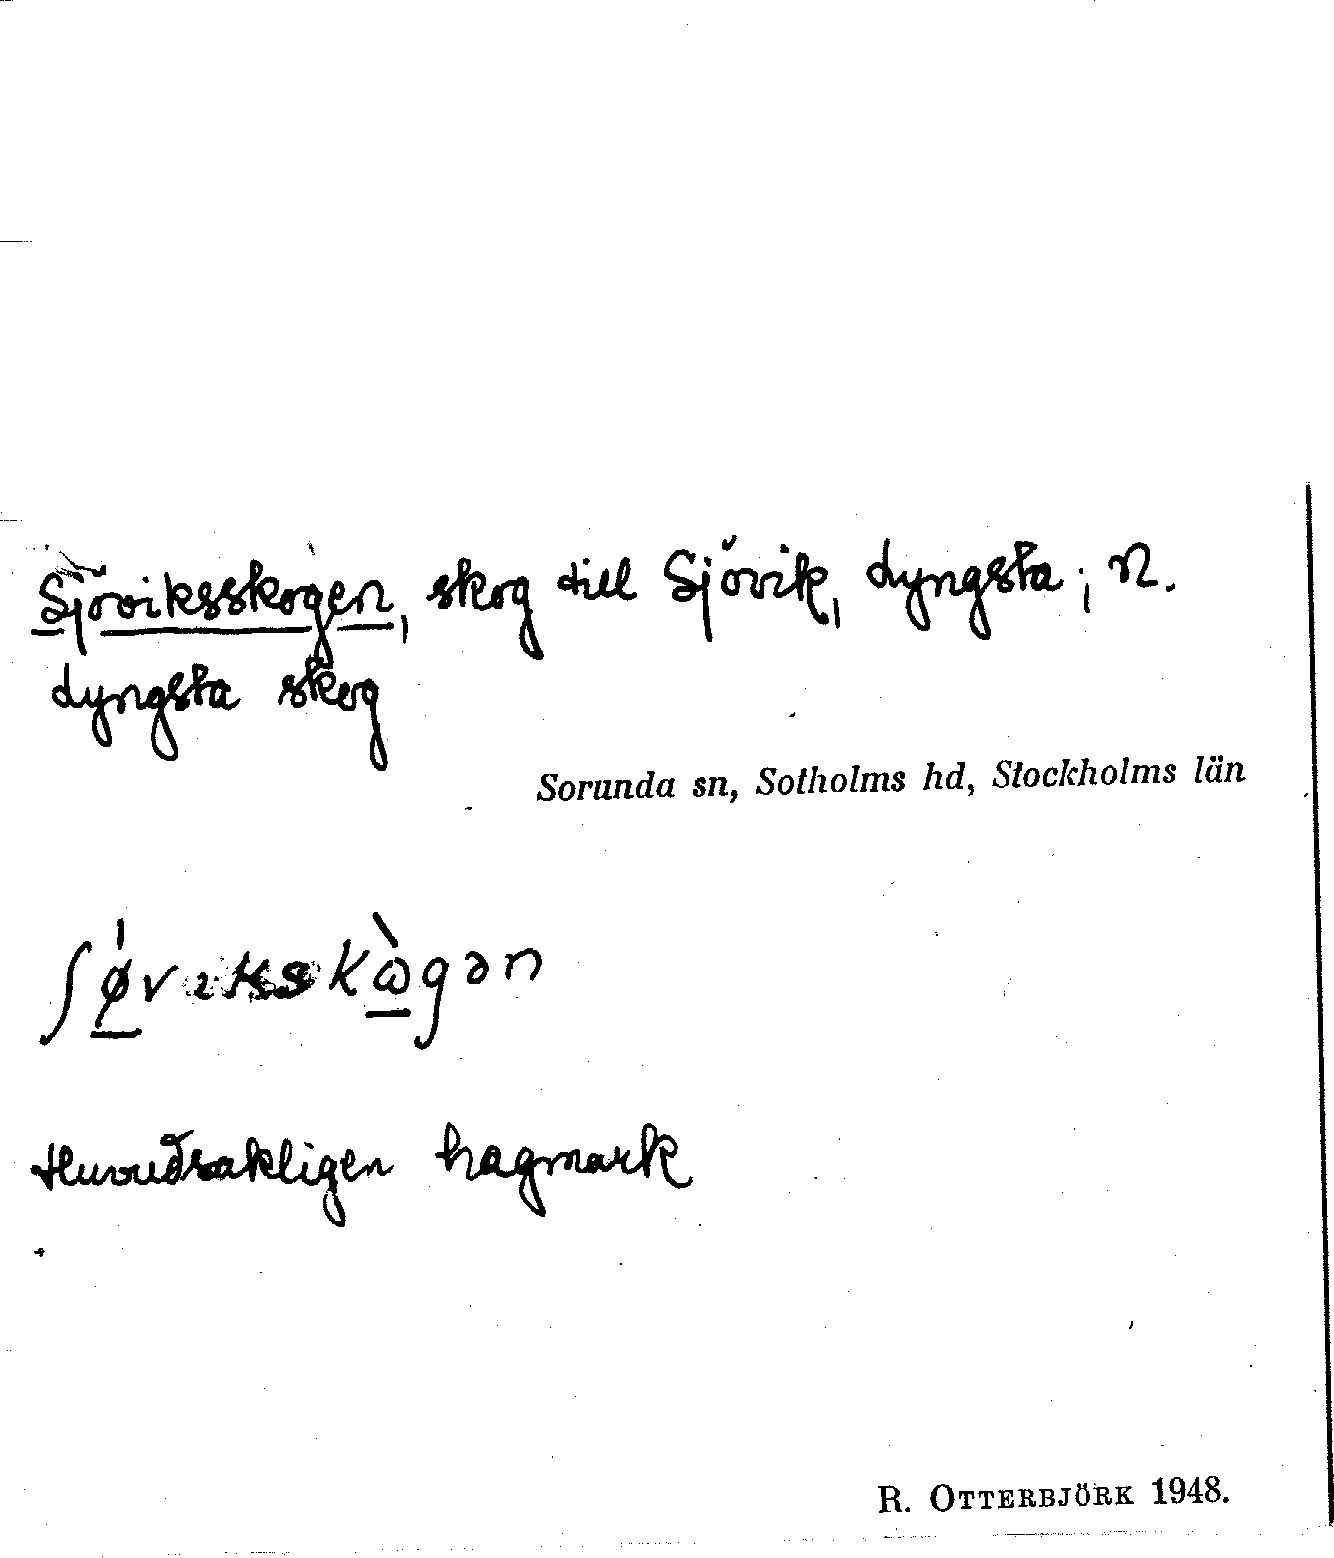 Sjöviksskogen, skog till Sjövik, Lyngsta; N.
Lyngsta skog
Sorunda sn, Sotholms hd, Stockholms län
ʃǿvɩksskὼgən
Huvudsakligen hagmark
R. OTTERBJÖRK 1948.